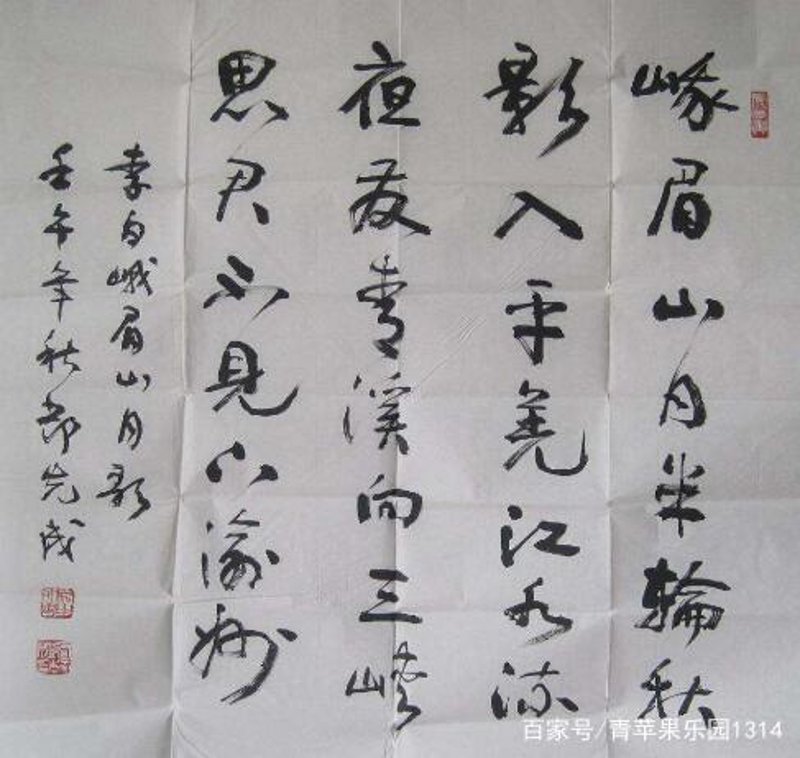 峨眉山月半輪秋
影入平羌江水流
夜发青溪向三峡
思君不見下渝州
李白峨眉山月歌
壬午年秋先成
百家号/青苹果乐园1314